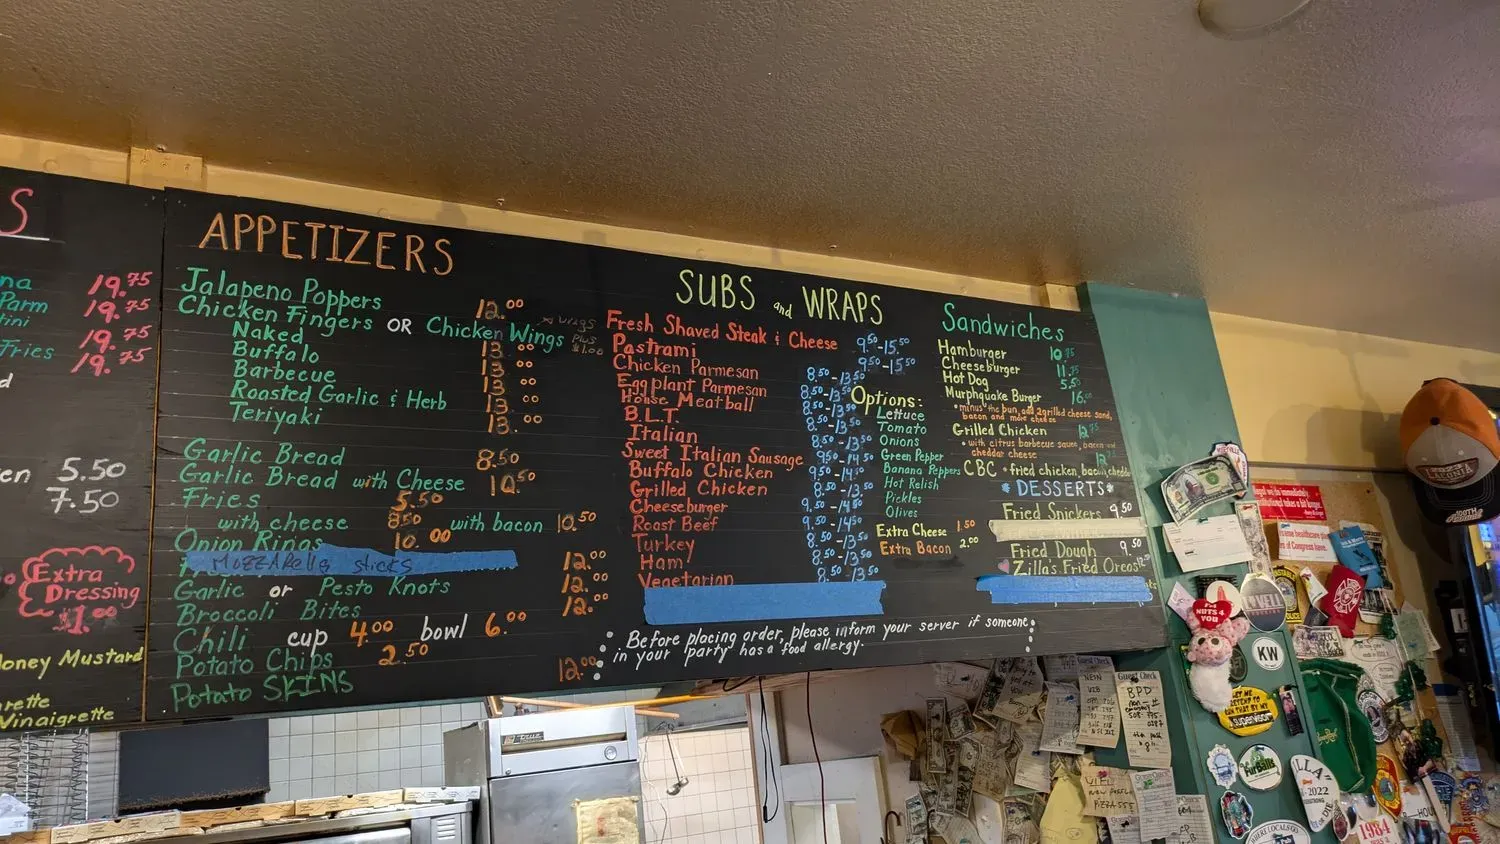 S
na 19.75
Parm 19.75
tini 19.75
Fries 19.75
d
en 5.50
7.50
Extra
Dressing
$1.00
Honey Mustard
rette
Vinaigrette
APPETIZERS
Jalapeno Poppers 12.00
Chicken Fingers OR Chicken Wings
* Wings
Plus
$1.00
Naked 13.00
Buffalo 13.00
Barbecue 13.00
Roasted Garlic & Herb 13.00
Teriyaki 13.00
Garlic Bread 8.50
Garlic Bread with Cheese 10.50
Fries 5.50
with cheese 8.50 with bacon 10.50
Onion Rings 10.00
MOZZARElla sticks 12.00
Garlic or Pesto Knots 12.00
Broccoli Bites 12.00
Chili cup 4.00 bowl 6.00
Potato Chips 2.50
Potato SKINS 12.00
SUBS and WRAPS
Fresh Shaved Steak & Cheese 9.50-15.50
Pastrami 9.50-15.50
Chicken Parmesan 8.50-13.50
Eggplant Parmesan 8.50-13.50
House Meatball 8.50-13.50
B.L.T. 8.50-13.50
Italian 8.50-13.50
Sweet Italian Sausage 9.50-14.50
Buffalo Chicken 9.50-14.50
Grilled Chicken 8.50-13.50
Cheeseburger 9.50-14.50
Roast Beef 9.50-14.50
Turkey 8.50-13.50
Ham 8.50-13.50
Vegetarian 8.50-13.50
Options:
Lettuce
Tomato
Onions
Green Pepper
Banana Peppers
Hot Relish
Pickles
Olives
Extra Cheese 1.50
Extra Bacon 2.00
Before placing order, please inform your server if someone
in your party has a food allergy.
Sandwiches
Hamburger 10.75
Cheeseburger 11.75
Hot Dog 5.50
Murphquake Burger 16.00
• minus the bun, add 2 grilled cheese sand,
bacon and more cheese
Grilled Chicken 12.75
• with citrus barbecue sauce, bacon and
cheddar cheese
CBC • fried chicken bacon cheddar
DESSERTS
Fried Snickers 9.50
Fried Dough 9.50
Zilla's Fried Oreos
true
Guest Check
Guest Check
I'M
NUTS 4
YOU
KW
Supervisor
2022
1984